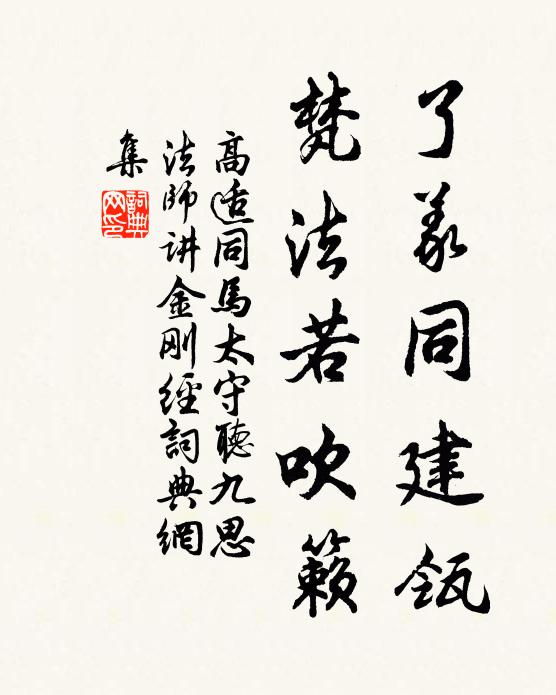 了义同建瓴
梵法若吹籁
高适同馬太守聽九思
法師讲金刚經詞典網
集
詞典
网印